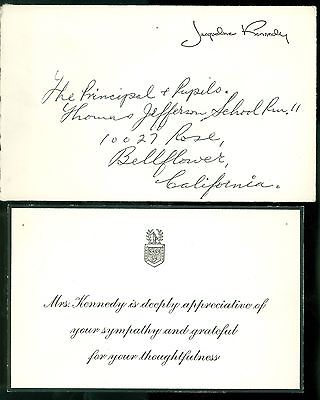 Jacqueline Kennedy
The Principal & Pupils.
Thomas Jefferson School Rm. 11
10027 Rose,
Bellflower,
California.
Mrs. Kennedy is deeply appreciative of
your sympathy and grateful
for your thoughtfulness